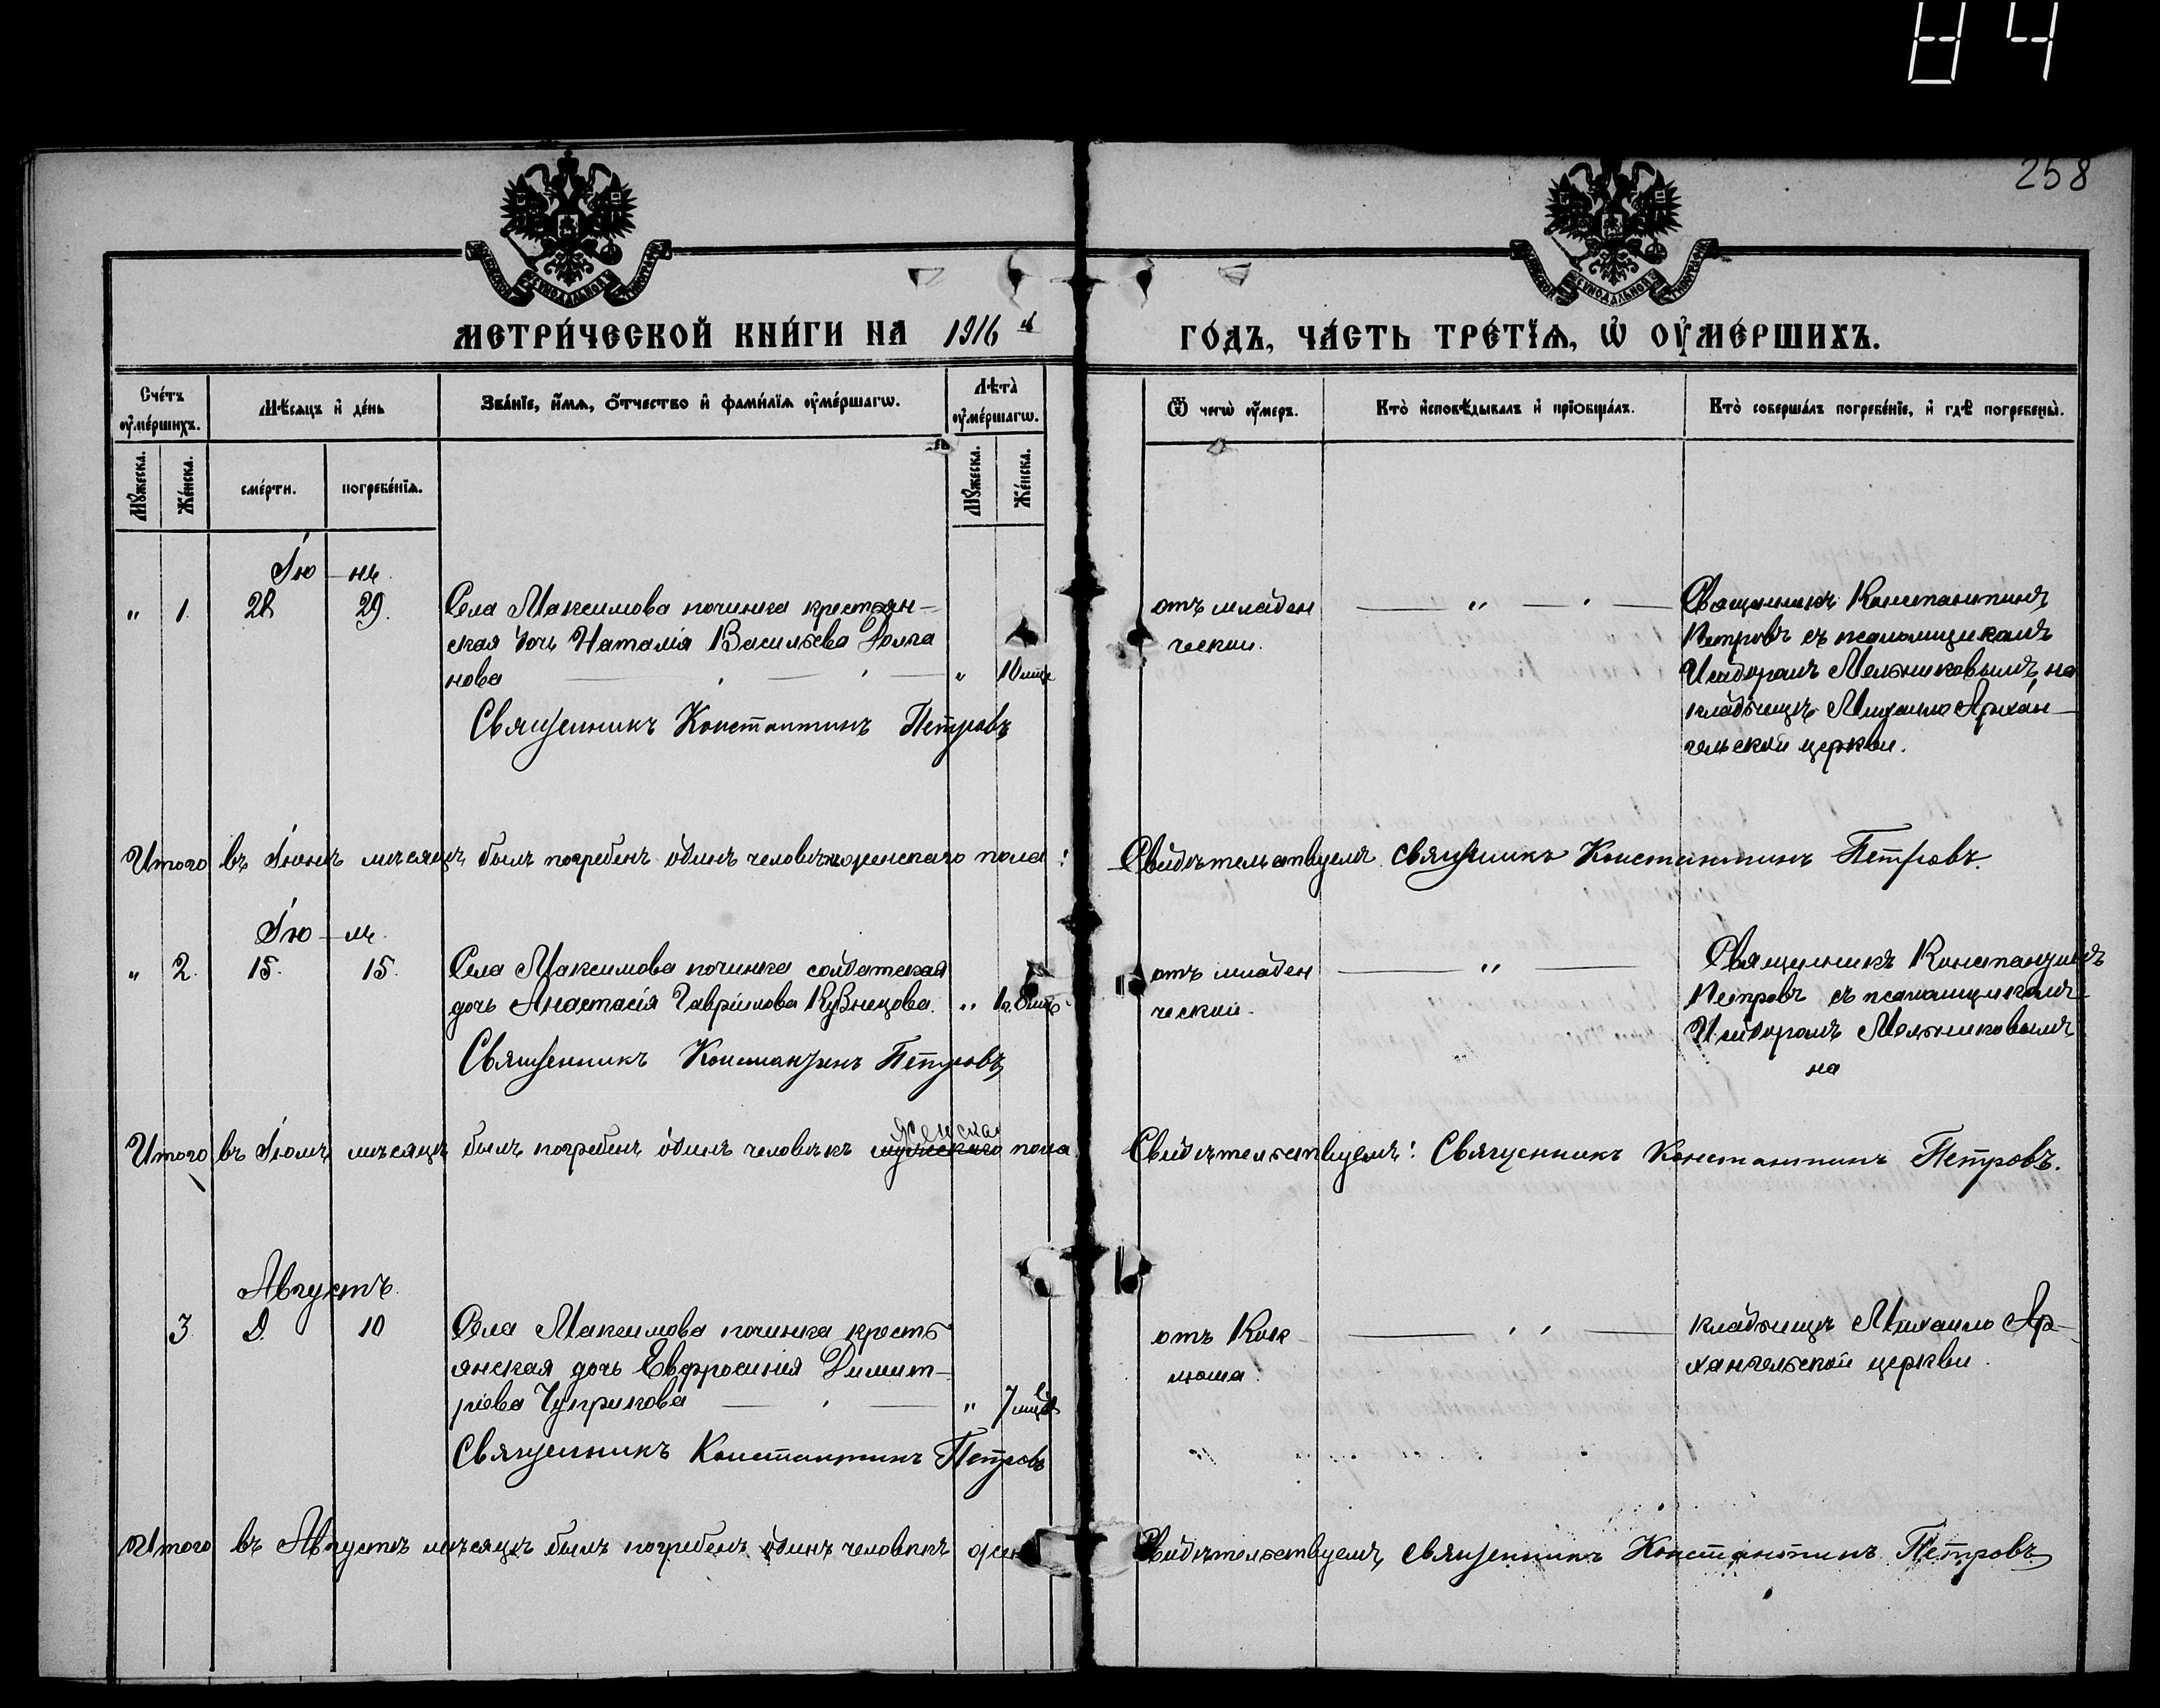 84
258
МЕТРИ́ЧЕСКОЙ КНИ́ГИ НА 1916 й
ГО́ДЪ, ЧА́СТЬ ТРЕ́ТЇѦ, Ѡ҆ ОУ҆МЕ́РШИХЪ.
Сче́тъ оу҆ме́ршихъ.
Мѣ́сяцъ и҆ де́нь
Зва́нїе, и҆́мѧ, ѻ҆́тчество и҆ фами́лїѧ оу҆ме́ршагѡ.
Лѣ́та̀ оу҆ме́ршагѡ.
Ѿ чегѡ̀ оу҆́меръ.
Кто̀ и҆сповѣ́дывалъ и҆ прїѻбща́лъ.
Кто̀ соверша́лъ погребе́нїе, и҆ гдѣ̀ погребены̀.
Мꙋ́жеска.
Же́нска.
сме́рти.
погребе́нїѧ.
Мꙋ́жеска.
Же́нска.
Iю нь
„ 1. 28 29.
Села Максимова починка крестьян-
ская дочь Наталiя Васильева Долга
нова „ 10 мце
Священникъ Константинъ Петровъ
отъ младен
ческой.
„
Священникъ Константинъ
Петровъ съ псаломщикомъ
Исидоромъ Мельниковымъ, на
кладбищѣ Михаило Архан-
гельской церкви.
Итого въ Iюнѣ мѣсяцѣ былъ погребенъ одинъ человѣкъ женскаго пола:
Свидѣтельствуемъ священникъ Константинъ Петровъ.
Iю ль
„ 2. 15. 15.
Села Максимова починка солдатская
дочь Анастасiя Гаврилова Кузнецова. „
Священникъ Константинъ Петровъ
отъ младен
ческой.
„
Священникъ Константинъ
Петровъ съ псаломщикомъ
Исидоромъ Мельниковымъ
на
Итого въ Iюлѣ мѣсяцѣ былъ погребенъ одинъ человѣкъ мужескаго женска пола
Свидѣтельствуемъ: Священникъ Константинъ Петровъ.
Августъ.
3. 9. 10
Села Максимова починка кресть
янская дочь Евфросинiя Димит-
рiева Чуприкова „ 7 мцев
Священникъ Константинъ Петровъ
отъ Кок
люша.
кладбищѣ Михаило Ар-
хангельской церкви.
Итого въ Августѣ мѣсяцѣ былъ погребенъ одинъ человѣкъ жен
Свидѣтельствуемъ, священникъ Константинъ Петровъ